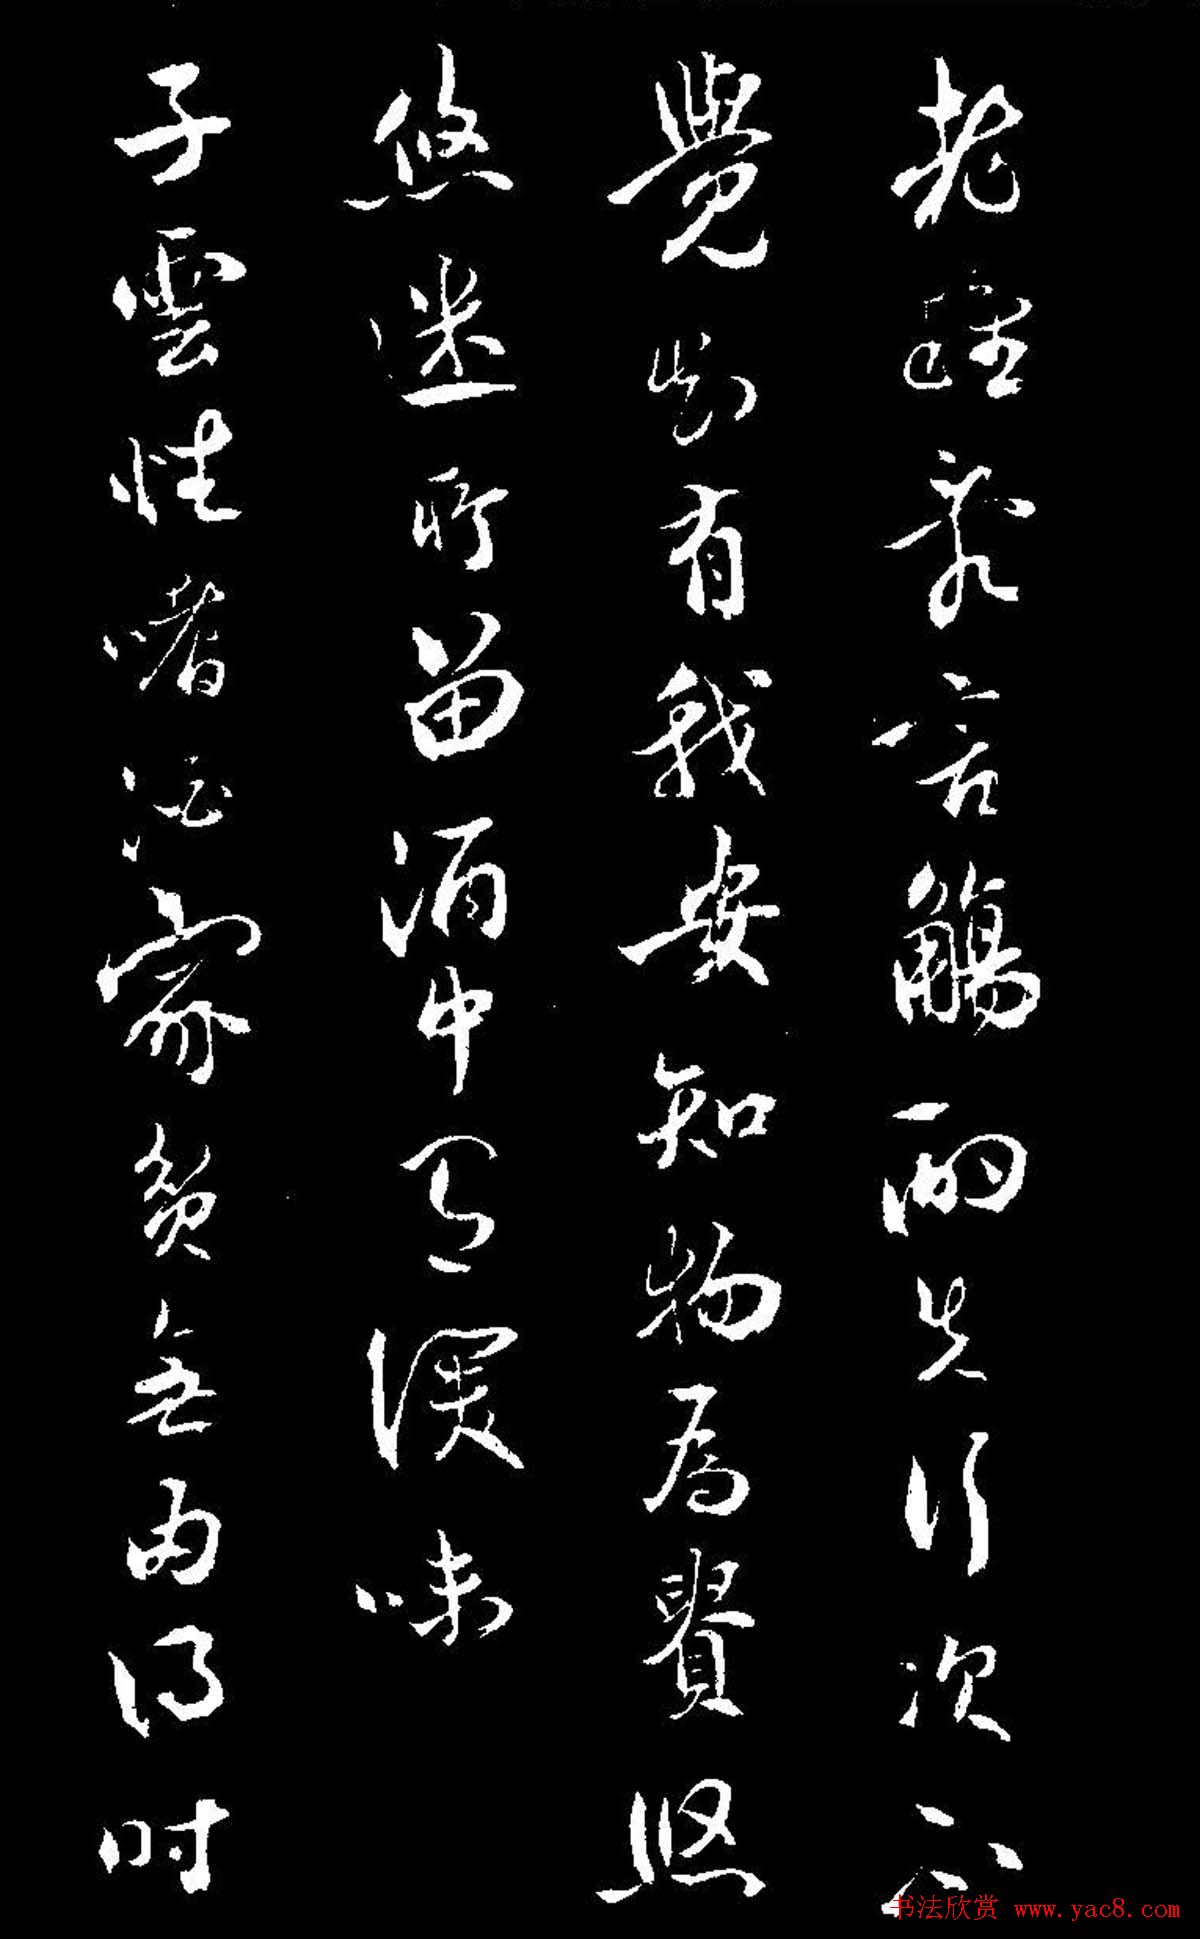 老雜亂言觴酌失行次不
覺知有我安知物為貴悠
悠迷所留酒中有深味
子雲性嗜酒家貧無由得時
书法欣赏 www.yac8.com